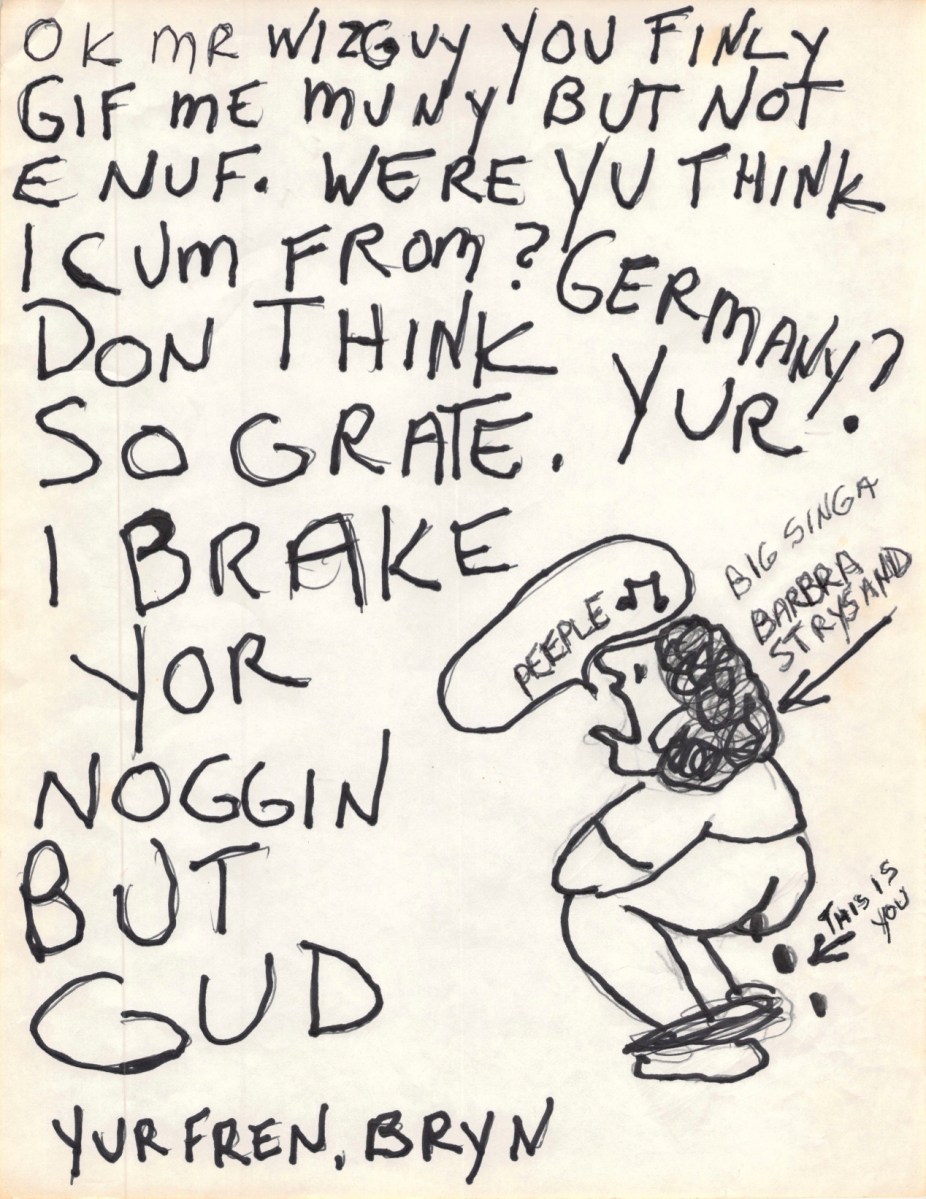 OK MR WIZGUY YOU FINLY
GIF ME MUNY BUT NOT
E NUF. WERE YU THINK
I CUM FROM? GERMANY?
DON THINK
SO GRATE. YUR
I BRAKE
YOR
NOGGIN
BUT
GUD
YUR FREN, BRYN
PEEPLE
BIG SINGA
BARBRA
STRYSAND
THIS IS
YOU